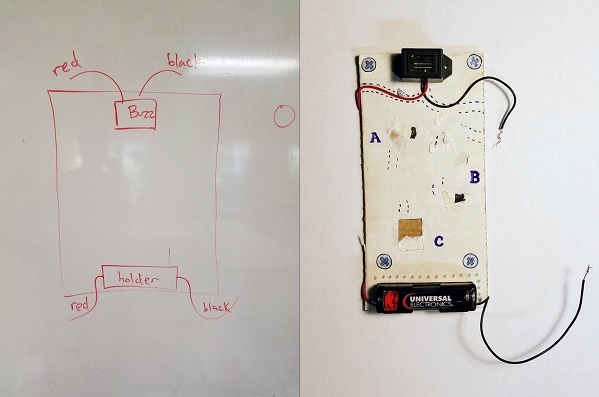 red
black
Buzz
holder
red
black
A
B
C
UNIVERSAL
ELECTRONICS